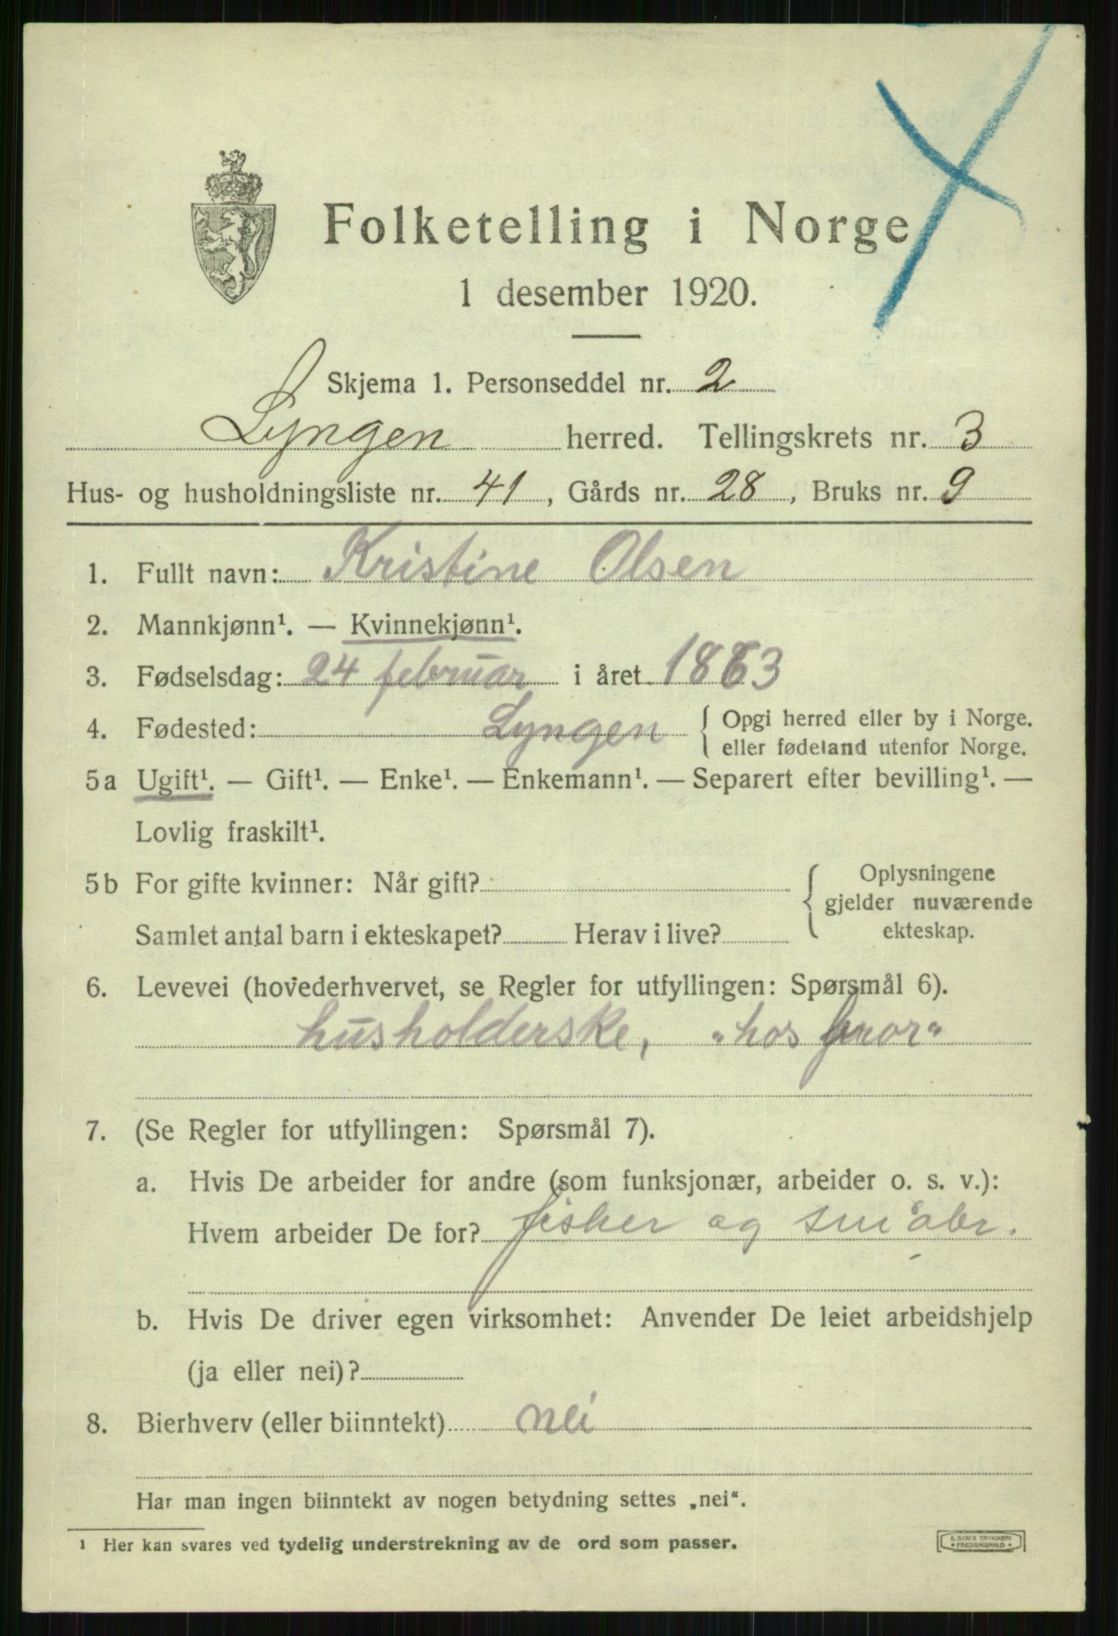 Folketelling i Norge
1 desember 1920.
Skjema 1. Personseddel nr. 2
Lyngen herred. Tellingskrets nr. 3
Hus- og husholdningsliste nr. 41, Gårds nr. 28, Bruks nr. 9
1. Fullt navn: Kristine Olsen
2. Mannkjønn¹. — Kvinnekjønn¹.
3. Fødselsdag: 24 februar i året 1863
4. Fødested: Lyngen { Opgi herred eller by i Norge.
eller fødeland utenfor Norge.
5a Ugift¹. — Gift¹. — Enke¹. — Enkemann¹. — Separert efter bevilling¹. —
Lovlig fraskilt¹.
5b For gifte kvinner: Når gift?
Samlet antal barn i ekteskapet? Herav i live?
{ Oplysningene
gjelder nuværende
ekteskap.
6. Levevei (hovederhvervet, se Regler for utfyllingen: Spørsmål 6).
husholderske, „hos bror"
7. (Se Regler for utfyllingen: Spørsmål 7).
a. Hvis De arbeider for andre (som funksjonær, arbeider o. s. v.):
Hvem arbeider De for? fisker og småbr.
b. Hvis De driver egen virksomhet: Anvender De leiet arbeidshjelp
(ja eller nei)?
8. Bierhverv (eller biinntekt) nei
Har man ingen biinntekt av nogen betydning settes „nei".
¹ Her kan svares ved tydelig understrekning av de ord som passer.